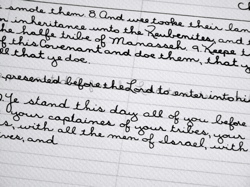 smote them: 8 And wee tooke their lan
inheritance unto the Reubenites, and t
the halfe tribe of Manasseh 9 Keepe t
of this Covenant and doe them, that y
all that ye doe.
presented before the Lord to enter into his
Ye stand this day all of you before
your captaines of your tribes, your
with all the men of Israel, with
ives, and